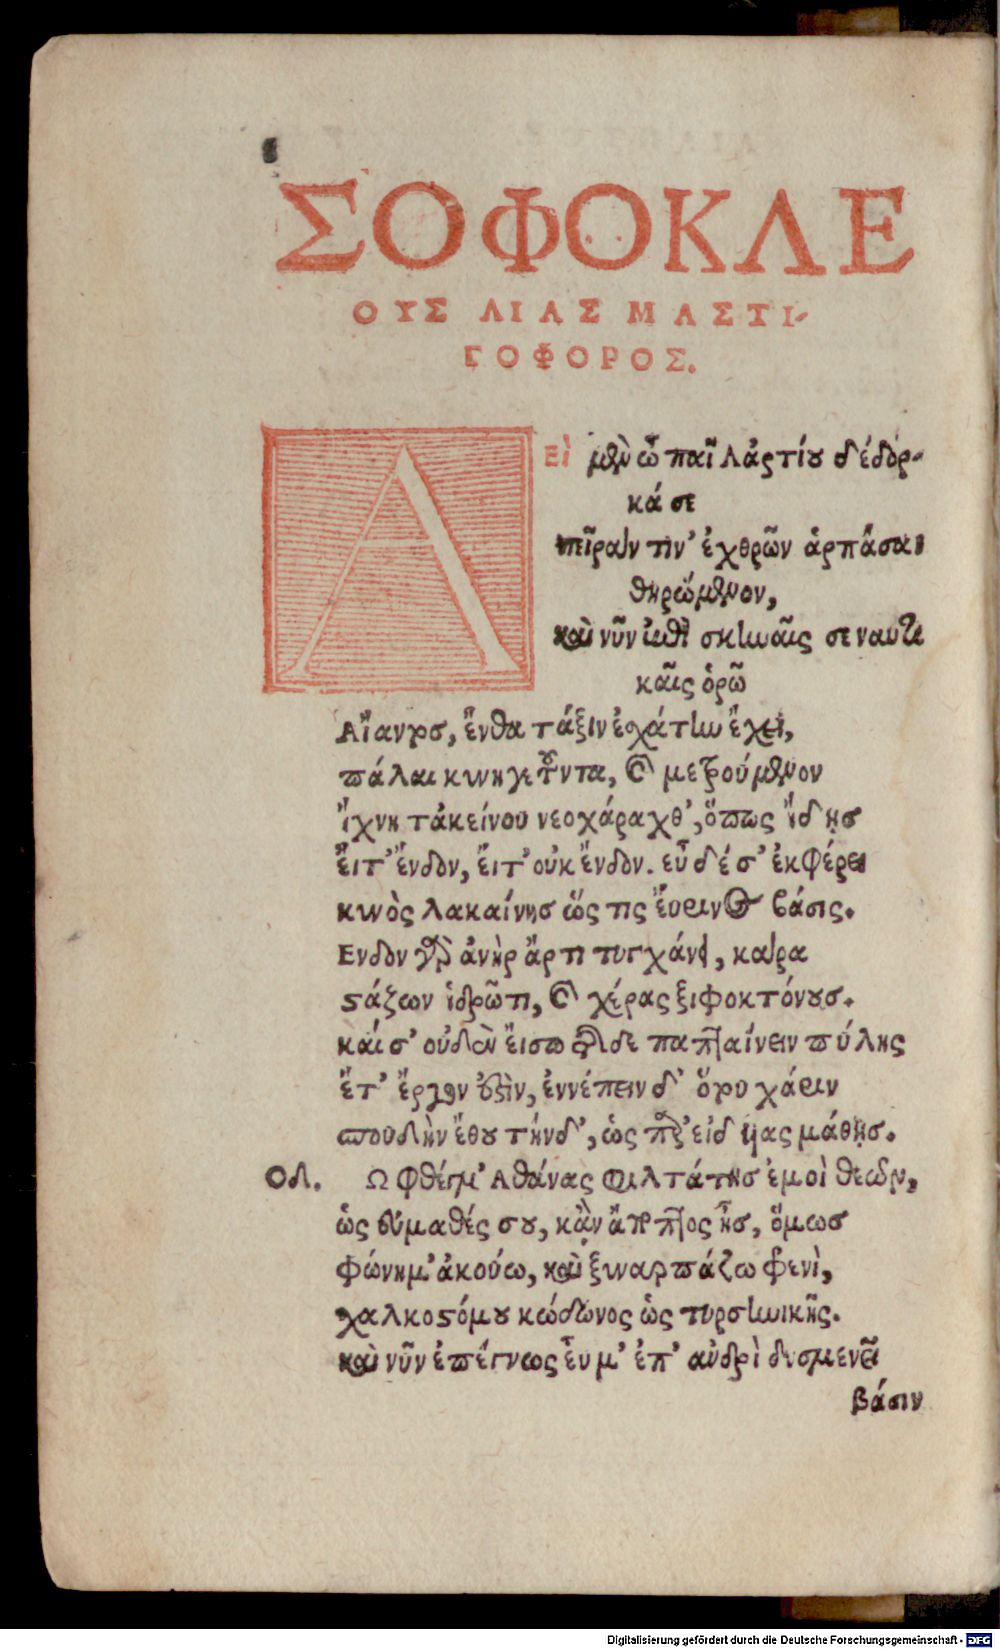 ΣΟΦΟΚΛΕ
ΟΥΣ ΑΙΑΣ ΜΑΣΤΙ-
ΓΟΦΟΡΟΣ.
ΑΕὶ μὲν ὦ παῖ Λαρτίου δέδορ-
κά σε
πεῖράν τιν’ ἐχθρῶν ἁρπάσαι
θηρώμενον,
καὶ νῦν ἐπὶ σκηναῖς σε ναυτι
καῖς ὁρῶ
Αἴαντος, ἔνθα τάξιν ἐσχάτην ἔχει,
πάλαι κυνηγετοῦντα, καὶ μετρούμενον
ἴχνη τἀκείνου νεοχάραχθ’, ὅπως ἴδῃσ
εἴτ’ ἔνδον, εἴτ’ οὐκ ἔνδον. εὖ δέ σ’ ἐκφέρει
κυνὸς λακαίνησ ὥς τις εὔρινος βάσις.
Ενδον γὰρ ἀνὴρ ἄρτι τυγχάνει, κάρα
στάζων ἱδρῶτι, καὶ χέρας ξιφοκτόνουσ.
καί σ’ οὐδὲν εἴσω τῆσδε παπταίνειν πύλης
ἔτ’ ἔργον ἐστὶν, ἐννέπειν δ’ ὅτου χάριν
σπουδὴν ἔθου τήνδ’, ὡς παρ’ εἰδυίας μάθῃσ.
Οδ. Ω φθέγμ’ Αθάνας φιλτάτησ ἐμοὶ θεῶν,
ὡς εὐμαθές σου, κἂν ἄποπτος ᾖσ, ὅμωσ
φώνημ’ ἀκούω, καὶ ξυναρπάζω φρενὶ,
χαλκοστόμου κώδωνος ὡς τυρσηνικῆς.
καὶ νῦν ἐπέγνως εὖ μ’ ἐπ’ ἀνδρὶ δυσμενεῖ
βάσιν
Digitalisierung gefördert durch die Deutsche Forschungsgemeinschaft - DFG